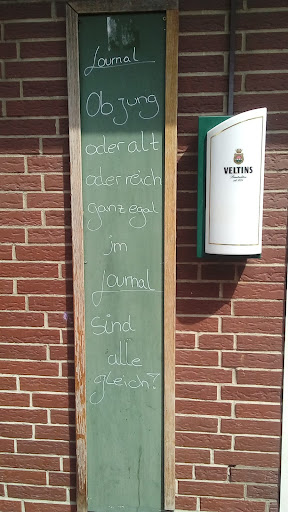 Journal
Ob jung
oder alt
oder reich
ganz egal
im
Journal
sind
alle
gleich?
VELTINS